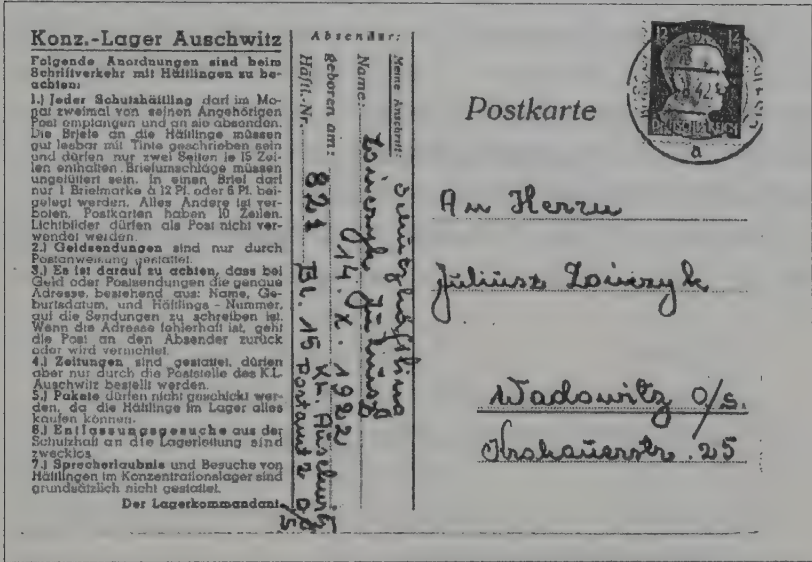 Konz.-Lager Auschwitz
Folgende Anordnungen sind beim
Schriftverkehr mit Häftlingen zu be-
achten:
1.) Jeder Schutzhäftling darf im Mo-
nat zweimal von seinen Angehörigen
Post empfangen und an sie absenden.
Die Briefe an die Häftlinge müssen
gut lesbar mit Tinte geschrieben sein
und dürfen nur zwei Seiten je 15 Zei-
len enthalten. Briefumschläge müssen
ungefüttert sein. In einen Brief darf
nur 1 Briefmarke à 12 Pf. oder 6 Pf. bei-
gelegt werden. Alles Andere ist ver-
boten. Postkarten haben 10 Zeilen.
Lichtbilder dürfen als Post nicht ver-
wendet werden.
2.) Geldsendungen sind nur durch
Postanweisung gestattet.
3.) Es ist darauf zu achten, dass bei
Geld oder Postsendungen die genaue
Adresse, bestehend aus: Name, Ge-
burtsdatum, und Häftlings-Nummer,
auf die Sendungen zu schreiben ist.
Wenn die Adresse fehlerhaft ist, geht
die Post an den Absender zurück
oder wird vernichtet.
4.) Zeitungen sind gestattet, dürfen
aber nur durch die Poststelle des K.L.
Auschwitz bestellt werden.
5.) Pakete dürfen nicht geschickt wer-
den, da die Häftlinge im Lager alles
kaufen können.
6.) Entlassungsgesuche aus der
Schutzhaft an die Lagerleitung sind
zwecklos.
7.) Sprecherlaubnis und Besuche von
Häftlingen im Konzentrationslager sind
grundsätzlich nicht gestattet.
Der Lagerkommandant.
Absender:
Meine Anschrift:
Schutzhäftling
Name: Juliusz
geboren am: 14. X. 1922
Häftl.-Nr. 821 Bl. 15 Kl. Auschwitz
Postamt 2 O/S
Postkarte
12 12
42
a
An Herrn
Juliusz
Wadowitz O/S.
Krakauerstr. 25